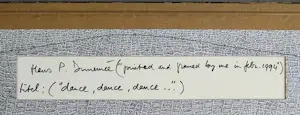 Hans P. ("printed and framed by me in febr. 1994")
titel: ("dance, dance, dance...")